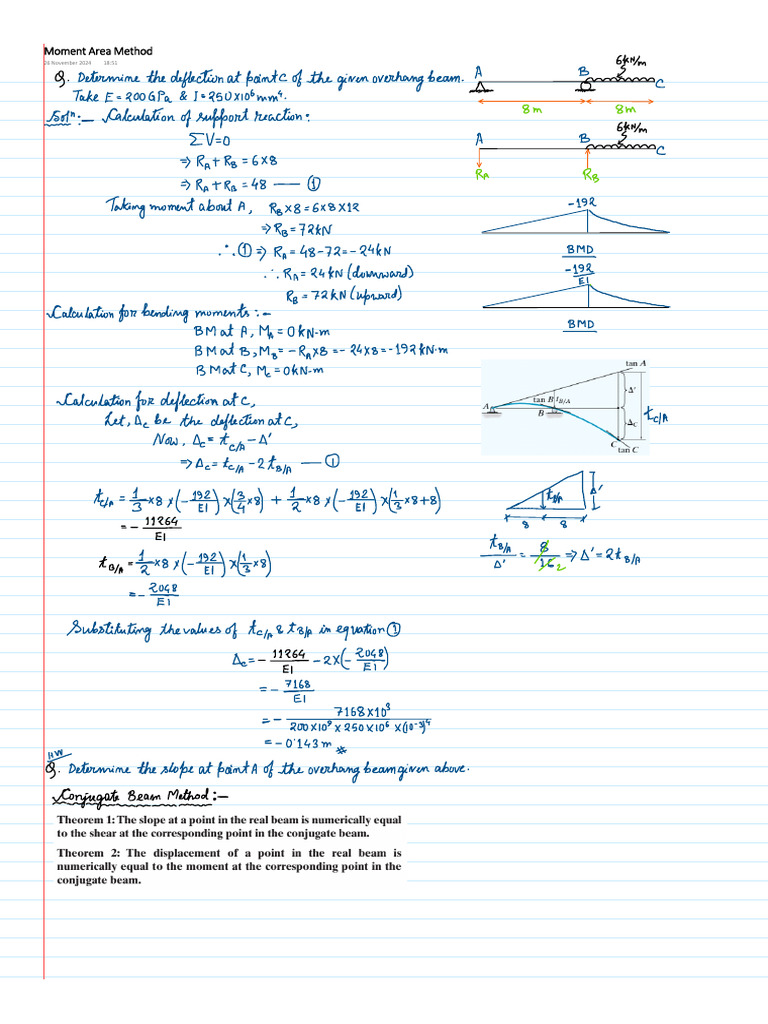 Moment Area Method
26 November 2024 18:51
Q. Determine the deflection at point C of the given overhang beam.
Take E = 200 GPa & I = 250×10⁶ mm⁴.
A B 6kN/m C
8m 8m
Solⁿ:- Calculation of support reaction:
ΣV=0
⇒ R_A + R_B = 6×8
⇒ R_A + R_B = 48 —— ①
A B 6kN/m C
R_A R_B
Taking moment about A, R_B×8 = 6×8×12
⇒ R_B = 72kN
∴ ① ⇒ R_A = 48-72 = -24kN
∴ R_A = 24kN (downward)
R_B = 72kN (upward)
-192
BMD
-192/EI
BMD
Calculation for bending moments:-
BM at A, M_A = 0kN-m
BM at B, M_B = -R_A×8 = -24×8 = -192kN-m
BM at C, M_C = 0kN-m
tan A
Δ'
tan B t_B/A
A
B
Δ_C
t_C/A
C
tan C
Calculation for deflection at C,
Let, Δ_C be the deflection at C,
Now, Δ_C = t_C/A - Δ'
⇒ Δ_C = t_C/A - 2t_B/A —— ①
t_C/A = 1/3×8×(-192/EI)×(3/4×8) + 1/2×8×(-192/EI)×(1/3×8+8)
= -11264/EI
t_B/A = 1/2×8×(-192/EI)×(1/3×8)
= -2048/EI
t_B/A Δ'
8 8
t_B/A/Δ' = 8/16 2 ⇒ Δ' = 2t_B/A
Substituting the values of t_C/A & t_B/A in equation ①
Δ_C = -11264/EI - 2×(-2048/EI)
= -7168/EI
= -7168×10³/200×10⁹×250×10⁶×(10⁻³)⁴
= -0.143 m
HW
Q. Determine the slope at point A of the overhang beam given above.
Conjugate Beam Method:-
Theorem 1: The slope at a point in the real beam is numerically equal
to the shear at the corresponding point in the conjugate beam.
Theorem 2: The displacement of a point in the real beam is
numerically equal to the moment at the corresponding point in the
conjugate beam.